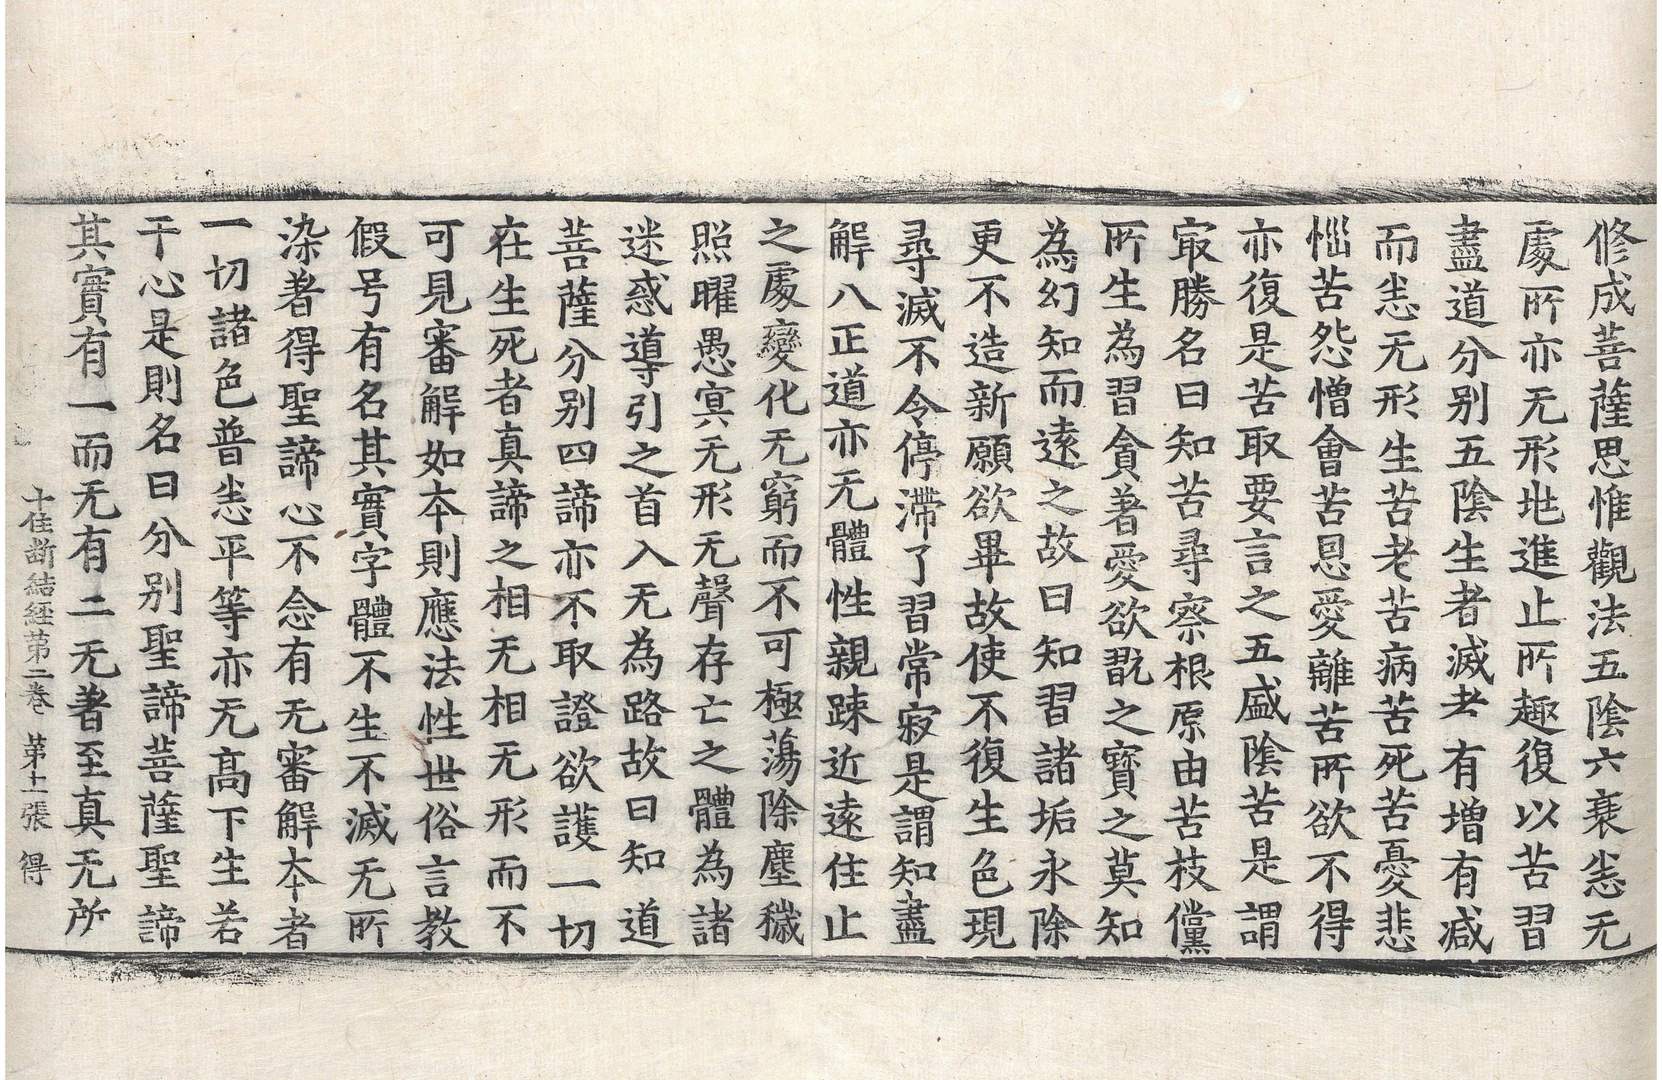 修成菩薩思惟觀法五陰六衰恙无
處所亦无形地進止所趣復以苦習
盡道分别五陰生者滅者有增有減
而恙无形生苦老苦病苦死苦憂悲
惱苦怨憎會苦恩愛離苦所欲不得
亦復是苦取要言之五盛陰苦是謂
㝡勝名曰知苦尋察根原由苦枝儻
所生為習貪著愛欲翫之寶之莫知
為幻知而遠之故曰知習諸垢永除
更不造新願欲畢故使不復生色現
尋滅不令停滯了習常寂是謂知盡
解八正道亦无體性親踈近遠住止
之處變化无窮而不可極蕩除塵穢
照曜愚冥无形无聲存亡之體為諸
迷惑導引之首入无為路故曰知道
菩薩分别四諦亦不取證欲護一切
在生死者真諦之相无相无形而不
可見審解如夲則應法性世俗言教
假号有名其實字體不生不滅无所
染著得聖諦心不念有无審解夲者
一切諸色普恙平等亦无高下生若
干心是則名曰分别聖諦菩薩聖諦
其實有一而无有二无著至真无所
十住断結經苐二卷 苐十一張 得